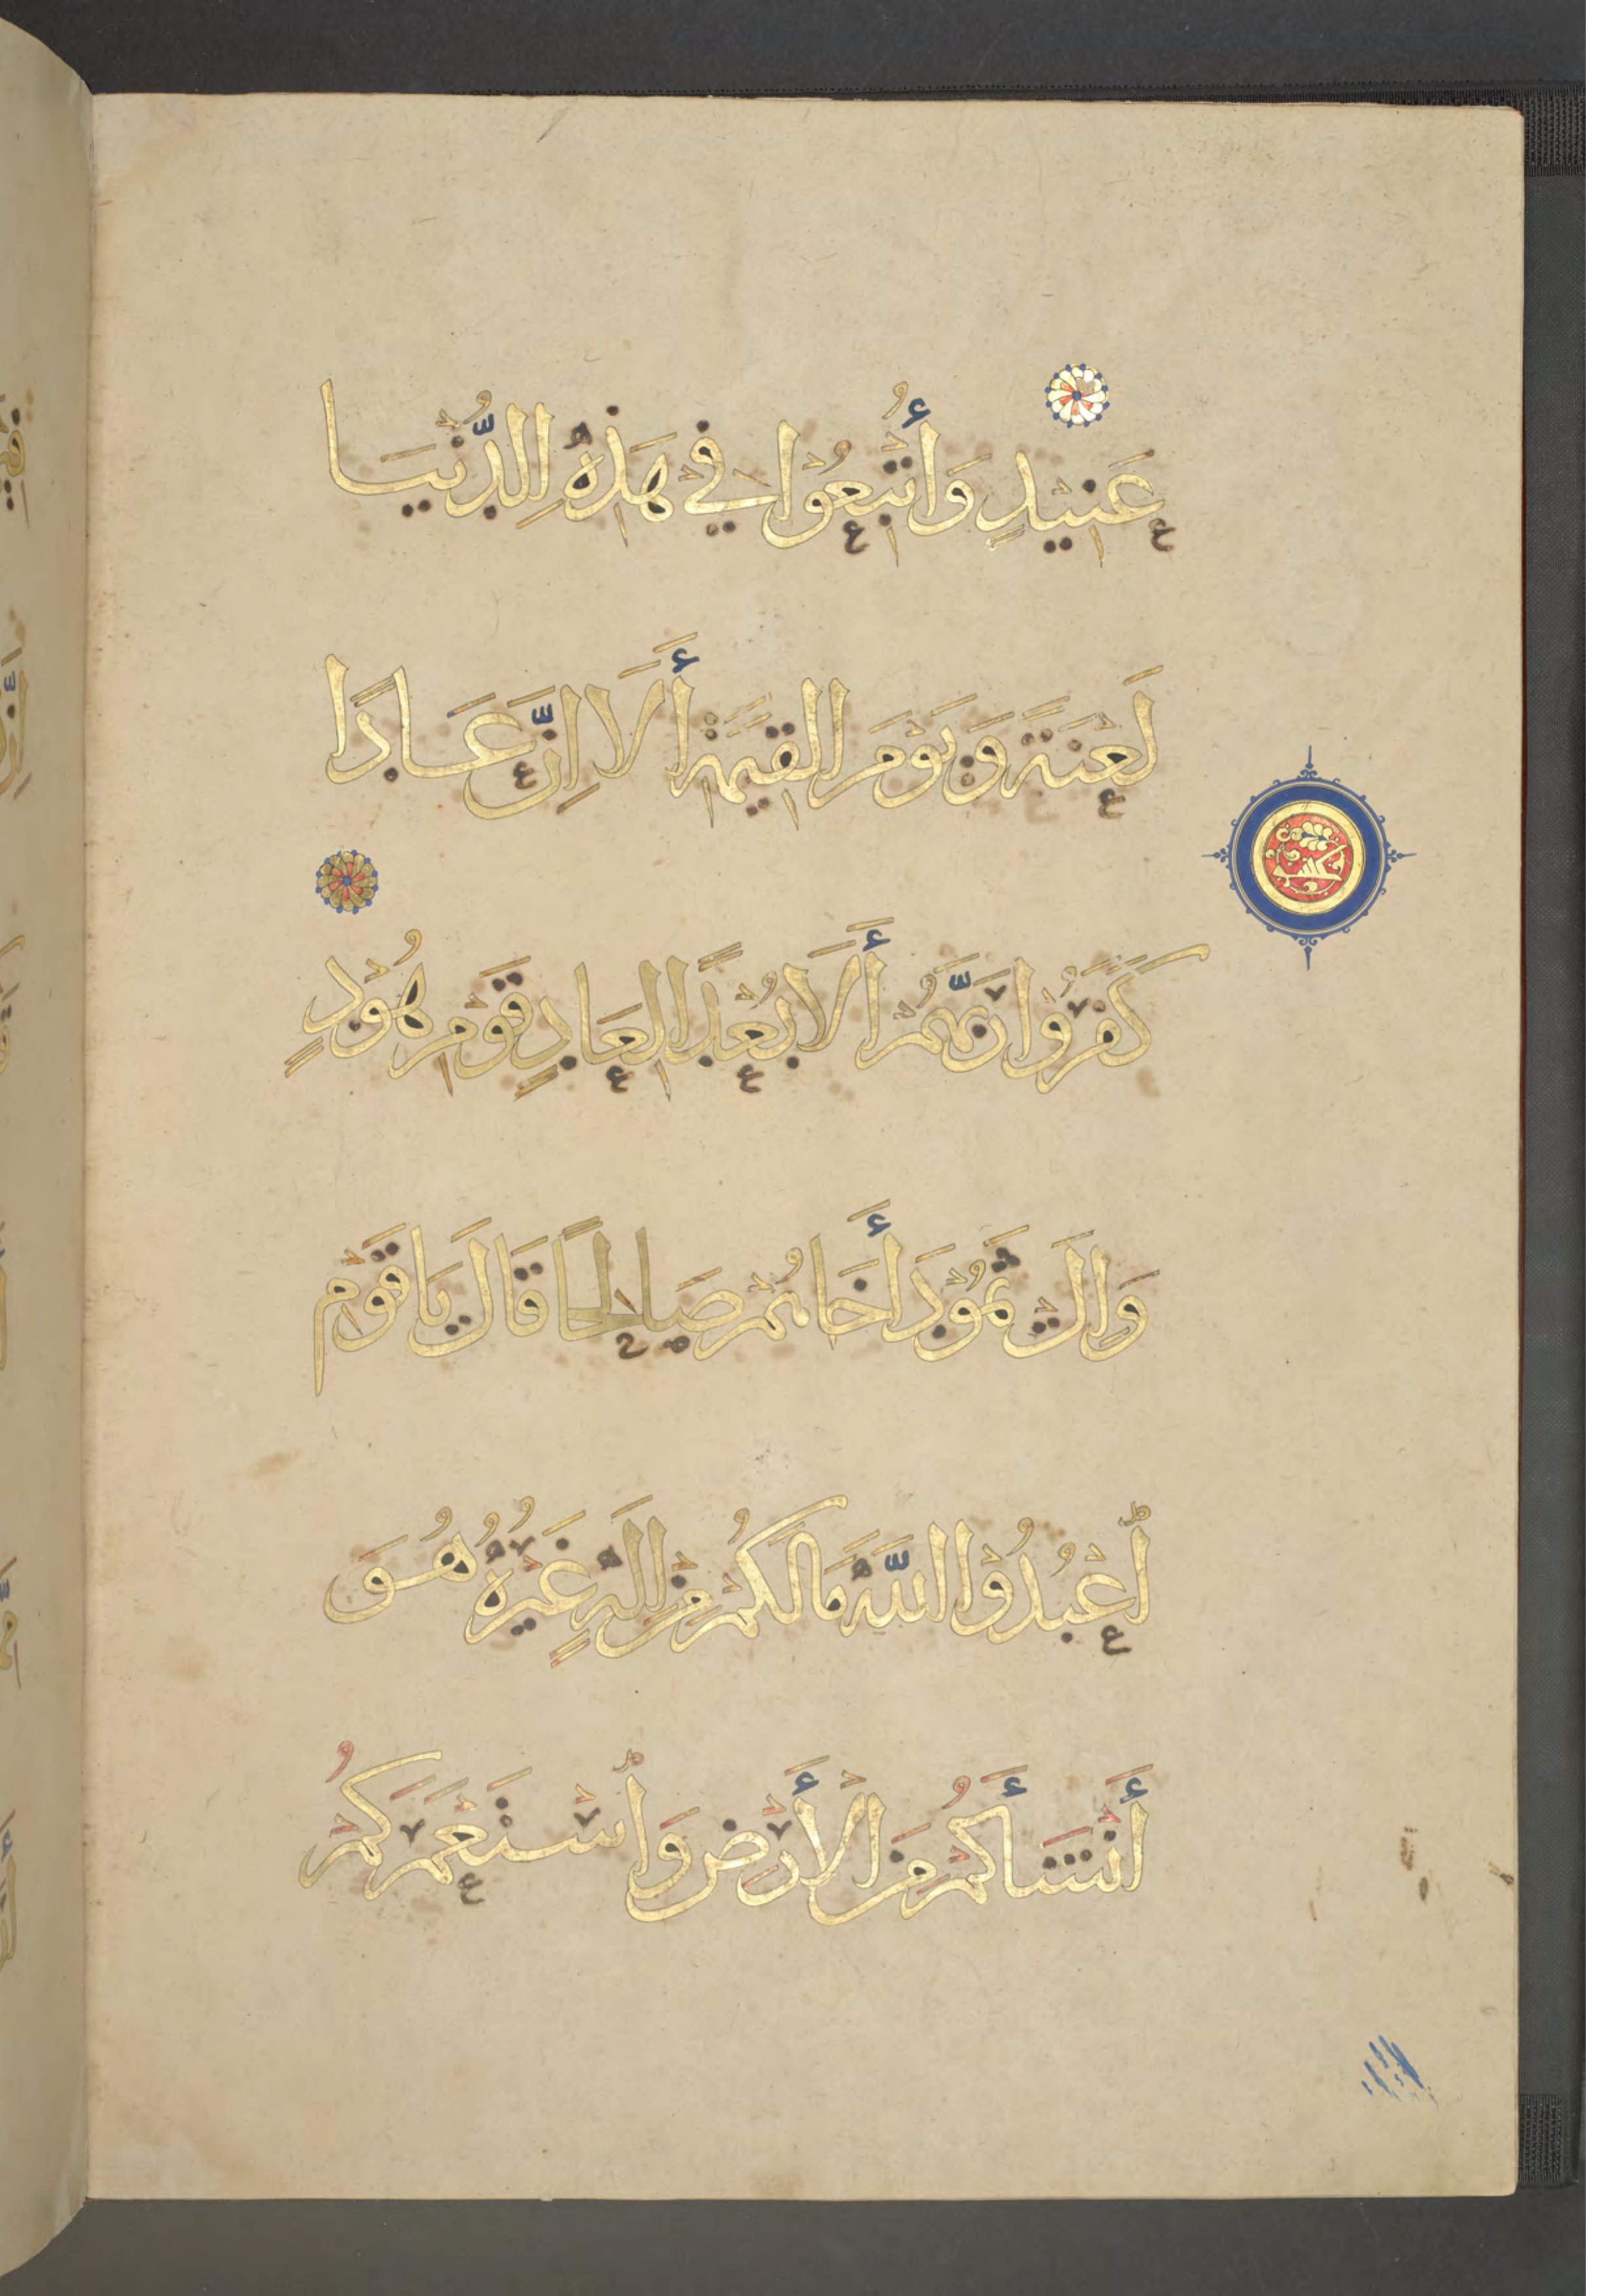 عَنِيدٍ وَأُتْبِعُوْا فِي هَذِهِ الدُّنْيَا
لَعْنَةً وَيَوْمَ الْقِيَمَةِ أَلَا اِنَّ عَادًا
كَفَرُوْا رَبَّهُمْ أَلَا بُعْدًا لِعَادٍ قَوْمِ هُوْدٍ
وَاِلَى ثَمُوْدَ أَخَاهُمْ صَالِحًا قَالَ يَا قَوْمِ
اعْبُدُوْا اللَّهَ مَا لَكُمْ مِنْ اِلَهٍ غَيْرُهُ هُوَ
أَنْشَأَكُمْ مِنَ الْأَرْضِ وَاسْتَعْمَرَكُمْ